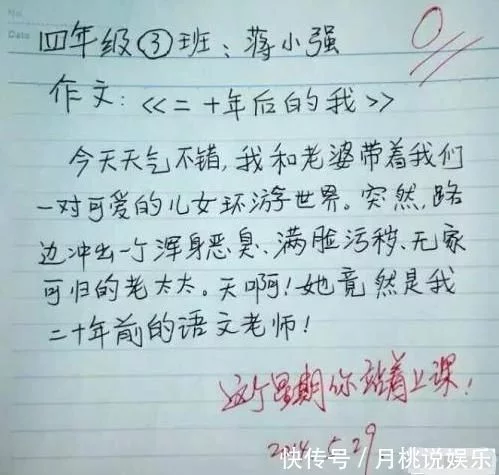 No
Date
四年级③班：蒋小强
0
作文：《二十年后的我》
今天天气不错，我和老婆带着我们
一对可爱的儿女环游世界。突然，路
边冲出一个浑身恶臭、满脸污秽、无家
可归的老太太。天啊！她竟然是我
二十年前的语文老师！
这个星期你站着上课！
快传号／月桃说娱乐